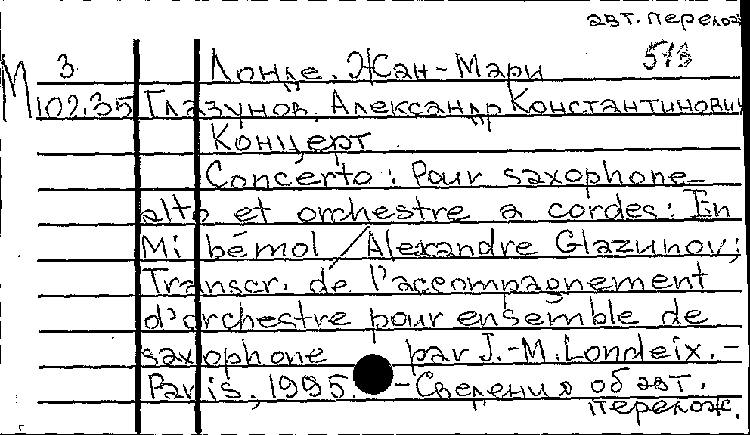 авт. перелож
3 Лонде, Жан-Мари 573
М 102.35 Глазунов, Александр Константинович
Концерт
Concerto : Pour saxophone-
alto et orchestre a cordes : En
Mi bémol / Alexandre Glazunov;
Transcr. de l'accompagnement
d'orchestre pour ensemble de
saxophone par J.-M. Londeix. -
Paris, 1995. - Сведения об авт.
перелож.